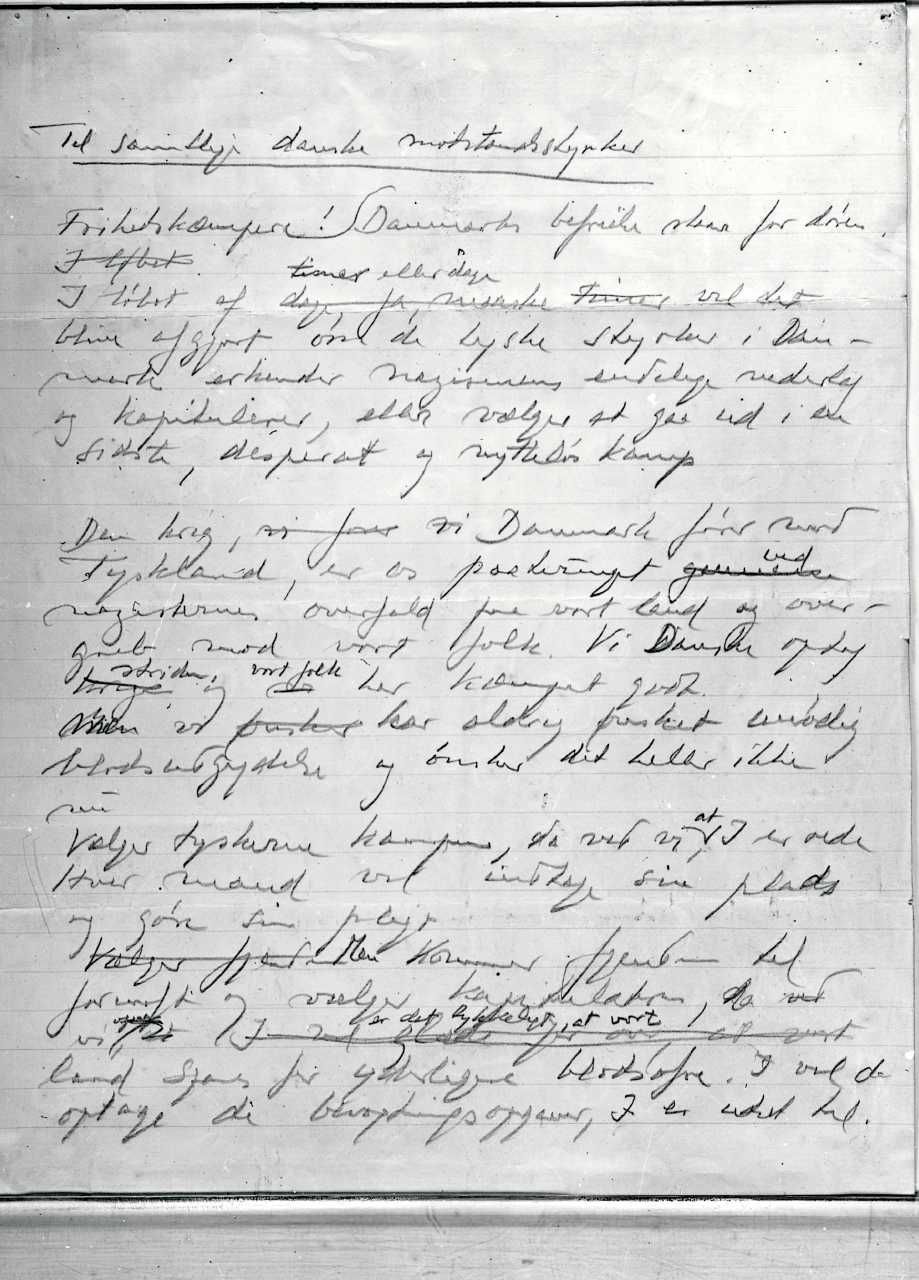 Til samtlige danske modstandsstyrker
Frihedskæmpere! Danmarks befrielse staar for døren.
I løbet
timer eller dage
I løbet af dage, ja, maaske timer vil det
blive afgjort om de tyske styrker i Dan-
mark erkender nazismens endelige nederlag
og kapitulerer, eller vælger at gaa ud i en
sidste, desperat og nytteløs kamp
Den krig, vi fører vi Danmark fører mod
Tyskland, er os paatvunget ved
nazisternes overfald paa vort land og over-
greb mod vort folk. Vi Danske optog
striden, vort folk
krige og har kæmpet godt.
Men vi ønsker har aldrig ønsket unødig
blodsudgydelse og ønsker det heller ikke
nu
Vælger tyskerne kampen, da ved vi, at I er rede
Hver mand vil indtage sin plads
og gøre sin pligt
Vælger fjenden Men kommer fjenden til
fornuft og vælger kapitulation, da ved
er det lykkeligt, at vort
vi, at I
land spares for yderligere blodsofre. I vil da
optage de bevogtningsopgaver, I er udset til.